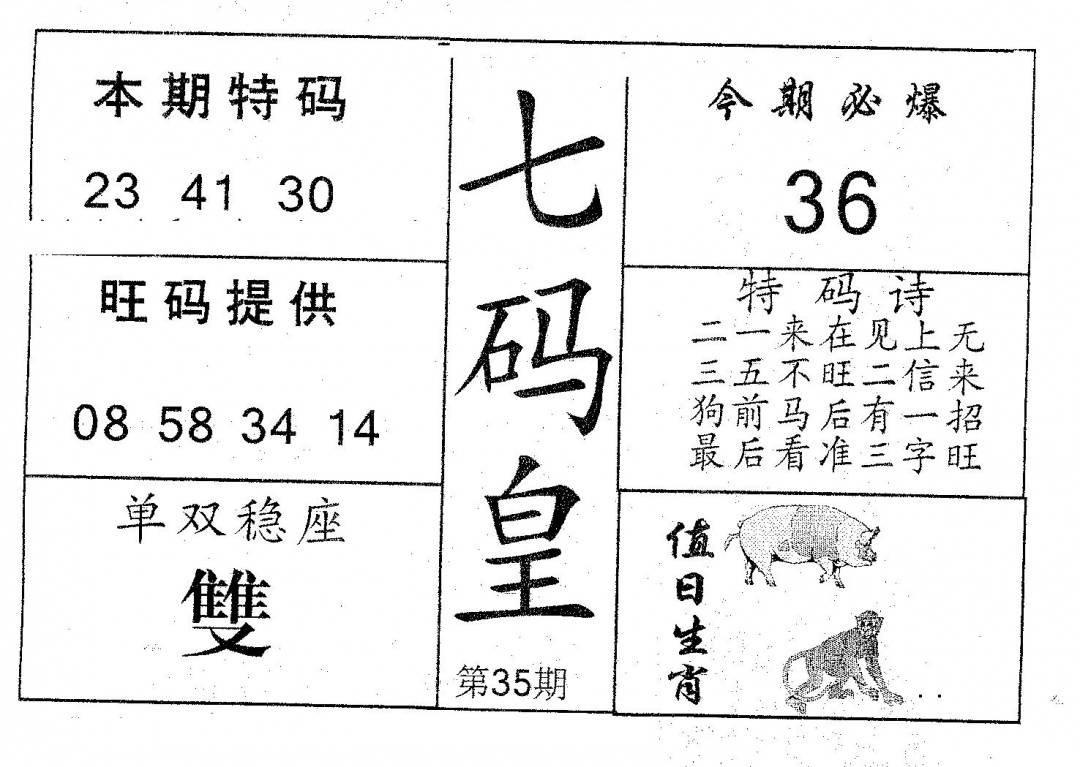 本期特码
23 41 30
旺码提供
08 58 34 14
单双稳座
雙
七码皇
第35期
今期必爆
36
特码诗
二一来在见上无
三五不旺二信来
狗前马后有一招
最后看准三字旺
值日生肖